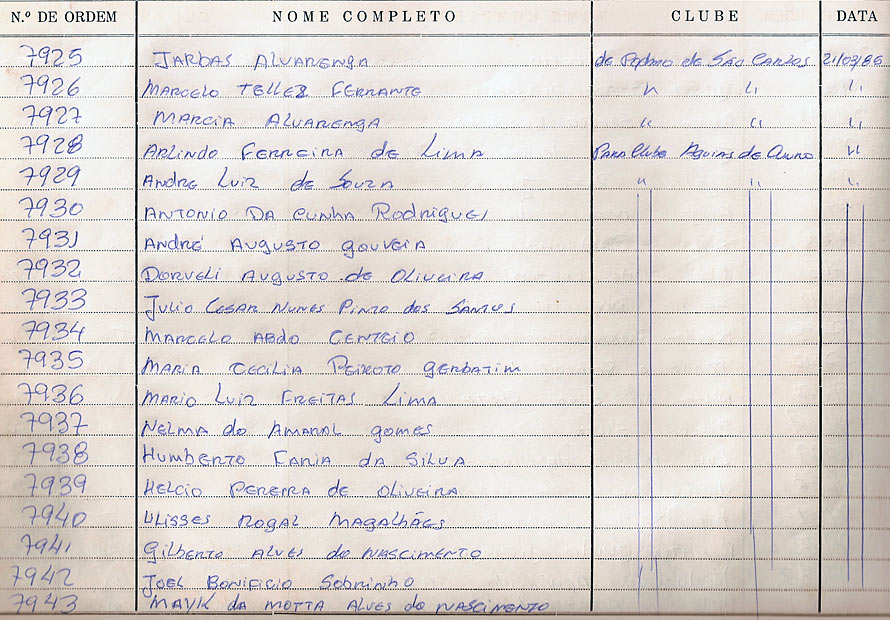 N.º DE ORDEM NOME COMPLETO CLUBE DATA
7925 JARBAS ALVARENGA de São Carlos 21/03/86
7926 MARCELO TELLES FERRANTE " " "
7927 MARCIA ALVARENGA " " "
7928 ARLINDO FERREIRA de Lima PARA Clube Aguias de "
7929 ANDRE Luiz de Souza " " "
7930 ANTONIO DA CUNHA Rodrigues
7931 ANDRÉ AUGUSTO gouveia
7932 DORVELI AUGUSTO de OLIVEIRA
7933 Julio CESAR NUNES PINTO dos SANTOS
7934 MARCELO ABDO CENTEIO
7935 MARIA CECILIA PEIXOTO GERBATIM
7936 MARIO Luiz FREITAS Lima
7937 NELMA do AMARAL gomes
7938 HUMBERTO FARIA da SILVA
7939 HELCIO PEREIRA de OLIVEIRA
7940 ULISSES ROGAL MAGALHÃES
7941 Gilberto ALVES do NASCIMENTO
7942 JOEL BONIFICIO Sobrinho
7943 MAYK da MOTTA ALVES do NASCIMENTO